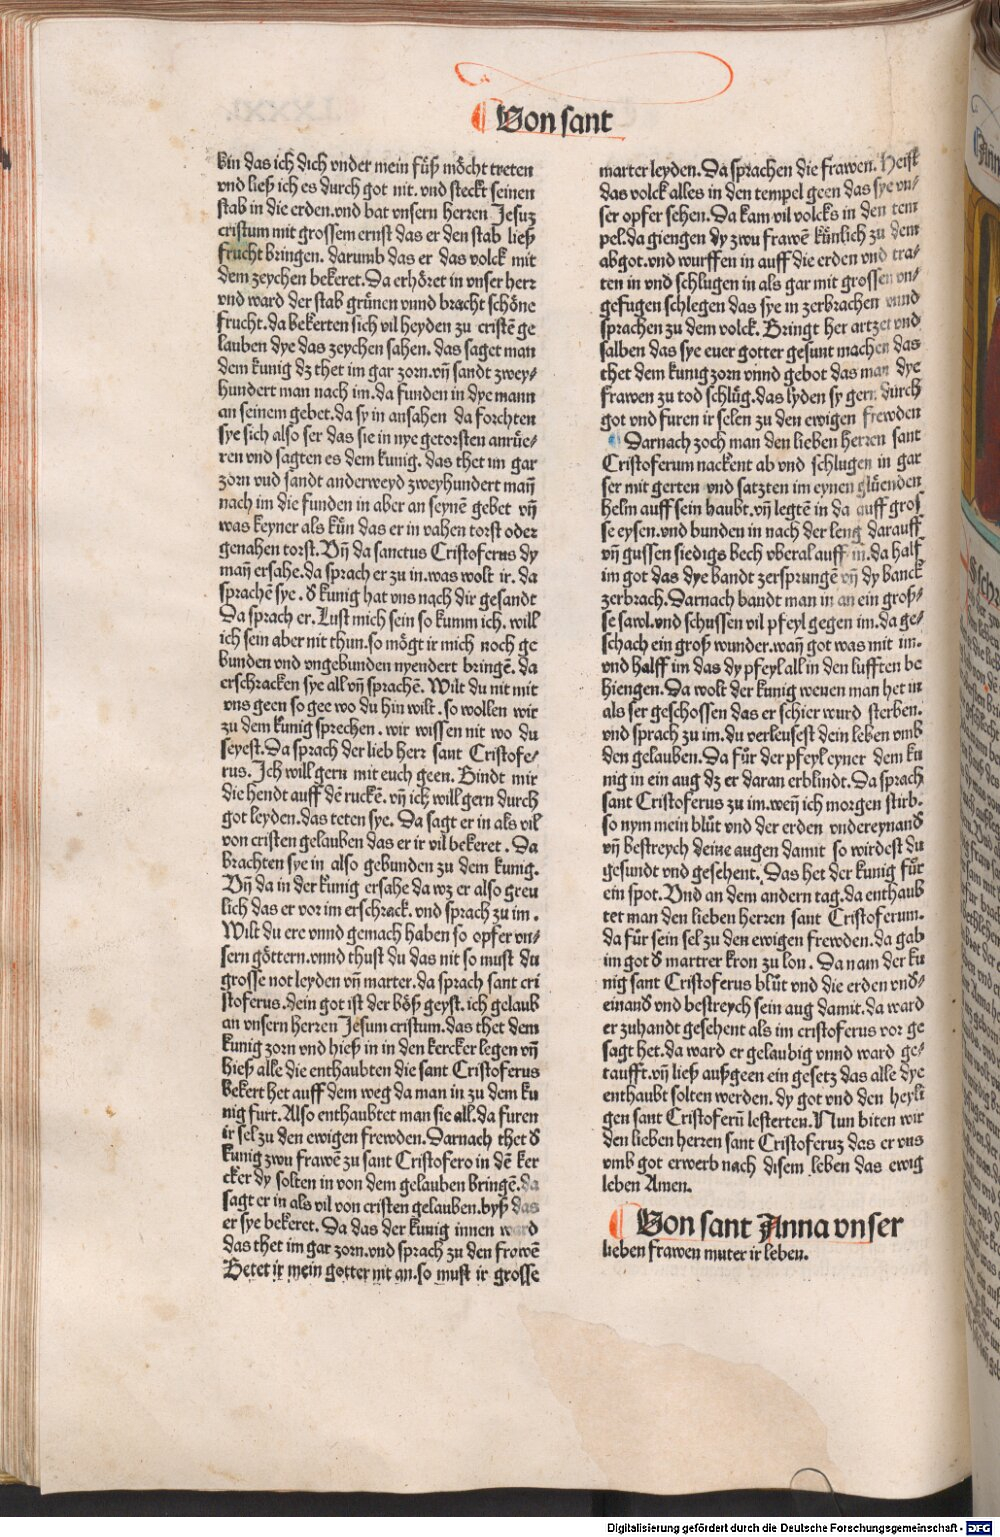 Von sant
kin das ich dich vnder mein fuͤß moͤcht treten
vnd ließ ich es durch got nit. vnd steckt seinen
stab in die erden.vnd bat vnsern herren Jesuz
cristum mit grossem ernst das er den stab ließ
frucht bringen. darumb das er das volck mit
dem zeychen bekeret. Da erhoͤret in vnser herr
vnd ward der stab gruͤnen vnnd bracht schoͤne
frucht.da bekerten sich vil heyden zu cristē ge
lauben dye das zeychen sahen. das saget man
dem kunig dz thet im gar zorn.vñ sandt zwey⸗
hundert man nach im.da funden in dye mann
an seinem gebet.da sy in ansahen da forchten
sye sich also ser das sie in nye getorsten anruͤe⸗
ren vnd sagten es dem kunig. das thet im gar
zorn vnd sandt anderweyd zweyhundert mañ
nach im die funden in aber an seynē gebet vñ
was keyner als kuͤn das er in vahen torst oder
genahen torst. Vñ da sanctus Cristoferus dy
mañ ersahe.da sprach er zu in.was wolt ir. da
sprachē sye. d̕ kunig hat vns nach dir gesandt
Da sprach er. Lust mich sein so kumm ich. will
ich sein aber nit thun.so moͤgt ir mich noch ge
bunden vnd vngebunden nyendert bringē. da
erschracken sye all vñ sprachē. Wilt du nit mit
vns geen so gee wo du hin wilt. so wollen wir
zu dem kunig sprechen. wir wissen nit wo du
seyest. Da sprach der lieb herr sant Cristofe⸗
rus. Ich will gern mit euch geen. Bindt mir
die hendt auff dē ruckē. vñ ich will gern durch
got leyden.das teten sye. Da sagt er in als vil
von cristen gelauben das er ir vil bekeret. Da
brachten sye in also gebunden zu dem kunig.
Vñ da in der kunig ersahe da wz er also greu
lich das er vor im erschrack. vnd sprach zu im.
Wilt du ere vnnd gemach haben so opfer vn⸗
sern goͤttern.vnnd thust du das nit so must du
grosse not leyden vñ marter.da sprach sant cri
stoferus.dein got ist der boͤß geyst.ich gelaub
an vnsern herren Jesum cristum.das thet dem
kunig zorn vnd hieß in in den kercker legen vñ
hieß alle die enthaubten die sant Cristoferus
bekert het auff dem weg da man in zu dem ku
nig furt. Also enthaubtet man sie all.da furen
ir sel zu den ewigen frewden. Darnach thet d̕
kunig zwu frawē zu sant Cristofero in dē ker
cker dy solten in von dem gelauben bringē.da
sagt er in als vil von cristen gelauben.byß das
er sye bekeret. Da das der kunig innen ward
das thet im gar zorn.vnd sprach zu den frawē
Betet ir mein gotter nit an.so must ir grosse
marter leyden. Da sprachen die frawen. Heist
das volck alles in den tempel geen das sye vn⸗
ser opfer sehen. Da kam vil volcks in den tem
pel.da giengen dy zwu frawē kuͤnlich zu dem
abgot.vnd wurffen in auff die erden vnd tra⸗
ten in vnd schlugen in als gar mit grossen vn⸗
gefugen schlegen das sye in zerbrachen vnnd
sprachen zu dem volck. Bringt her artzet vnd
salben das sye euer gotter gesunt machen das
thet dem kunig zorn vnnd gebot das man dye
frawen zu tod schluͤg.das lyden sy gern durch
got vnd furen ir selen zu den ewigen frewden
Darnach zoch man den lieben herren sant
Cristoferum nackent ab vnd schlugen in gar
ser mit gerten vnd satzten im eynen gluͤenden
helm auff sein haubt.vñ legtē in da auff gros
se eysen.vnd bunden in nach der leng darauff
vñ gussen siedigs bech vberal auff in.da half
im got das dye bandt zersprungē vñ dy banck
zerbrach. Darnach bandt man in an ein groß⸗
se sawl.vnd schussen vil pfeyl gegen im.da ge⸗
schach ein groß wunder.wañ got was mit im.
vnd halff im das dy pfeyl all in den lufften be
hiengen. Da wolt der kunig wenen man het in
als ser geschossen das er schier wurd sterben.
vnd sprach zu im.du verleusest dein leben vmb
den gelauben. Da fuͤr der pfeyl eyner dem ku
nig in ein aug dz er daran erblindt. Da sprach
sant Cristoferus zu im.weñ ich morgen stirb.
so nym mein bluͤt vnd der erden vndereynand̕
vñ bestreych deine augen damit so wirdest du
gesundt vnd gesehent. Das het der kunig fuͤr
ein spot. Vnd an dem andern tag.da enthaub
tet man den lieben herren sant Cristoferum.
da fuͤr sein sel zu den ewigen frewden.da gab
im got d̕ martrer kron zu lon. Da nam der ku
nig sant Cristoferus bluͤt vnd die erden vnd̕⸗
einand̕ vnd bestreych sein aug damit.da ward
er zuhandt gesehent als im cristoferus vor ge
sagt het.da ward er gelaubig vnnd ward ge⸗
taufft.vñ ließ außgeen ein gesetz das alle dye
enthaubt solten werden. dy got vnd den heyli
gen sant Cristoferū lesterten. Nun biten wir
den lieben herren sant Cristoferuz das er vns
vmb got erwerb nach disem leben das ewig
leben Amen.
Von sant Anna vnser
lieben frawen muter ir leben.
Digitalisierung gefördert durch die Deutsche Forschungsgemeinschaft - DFG